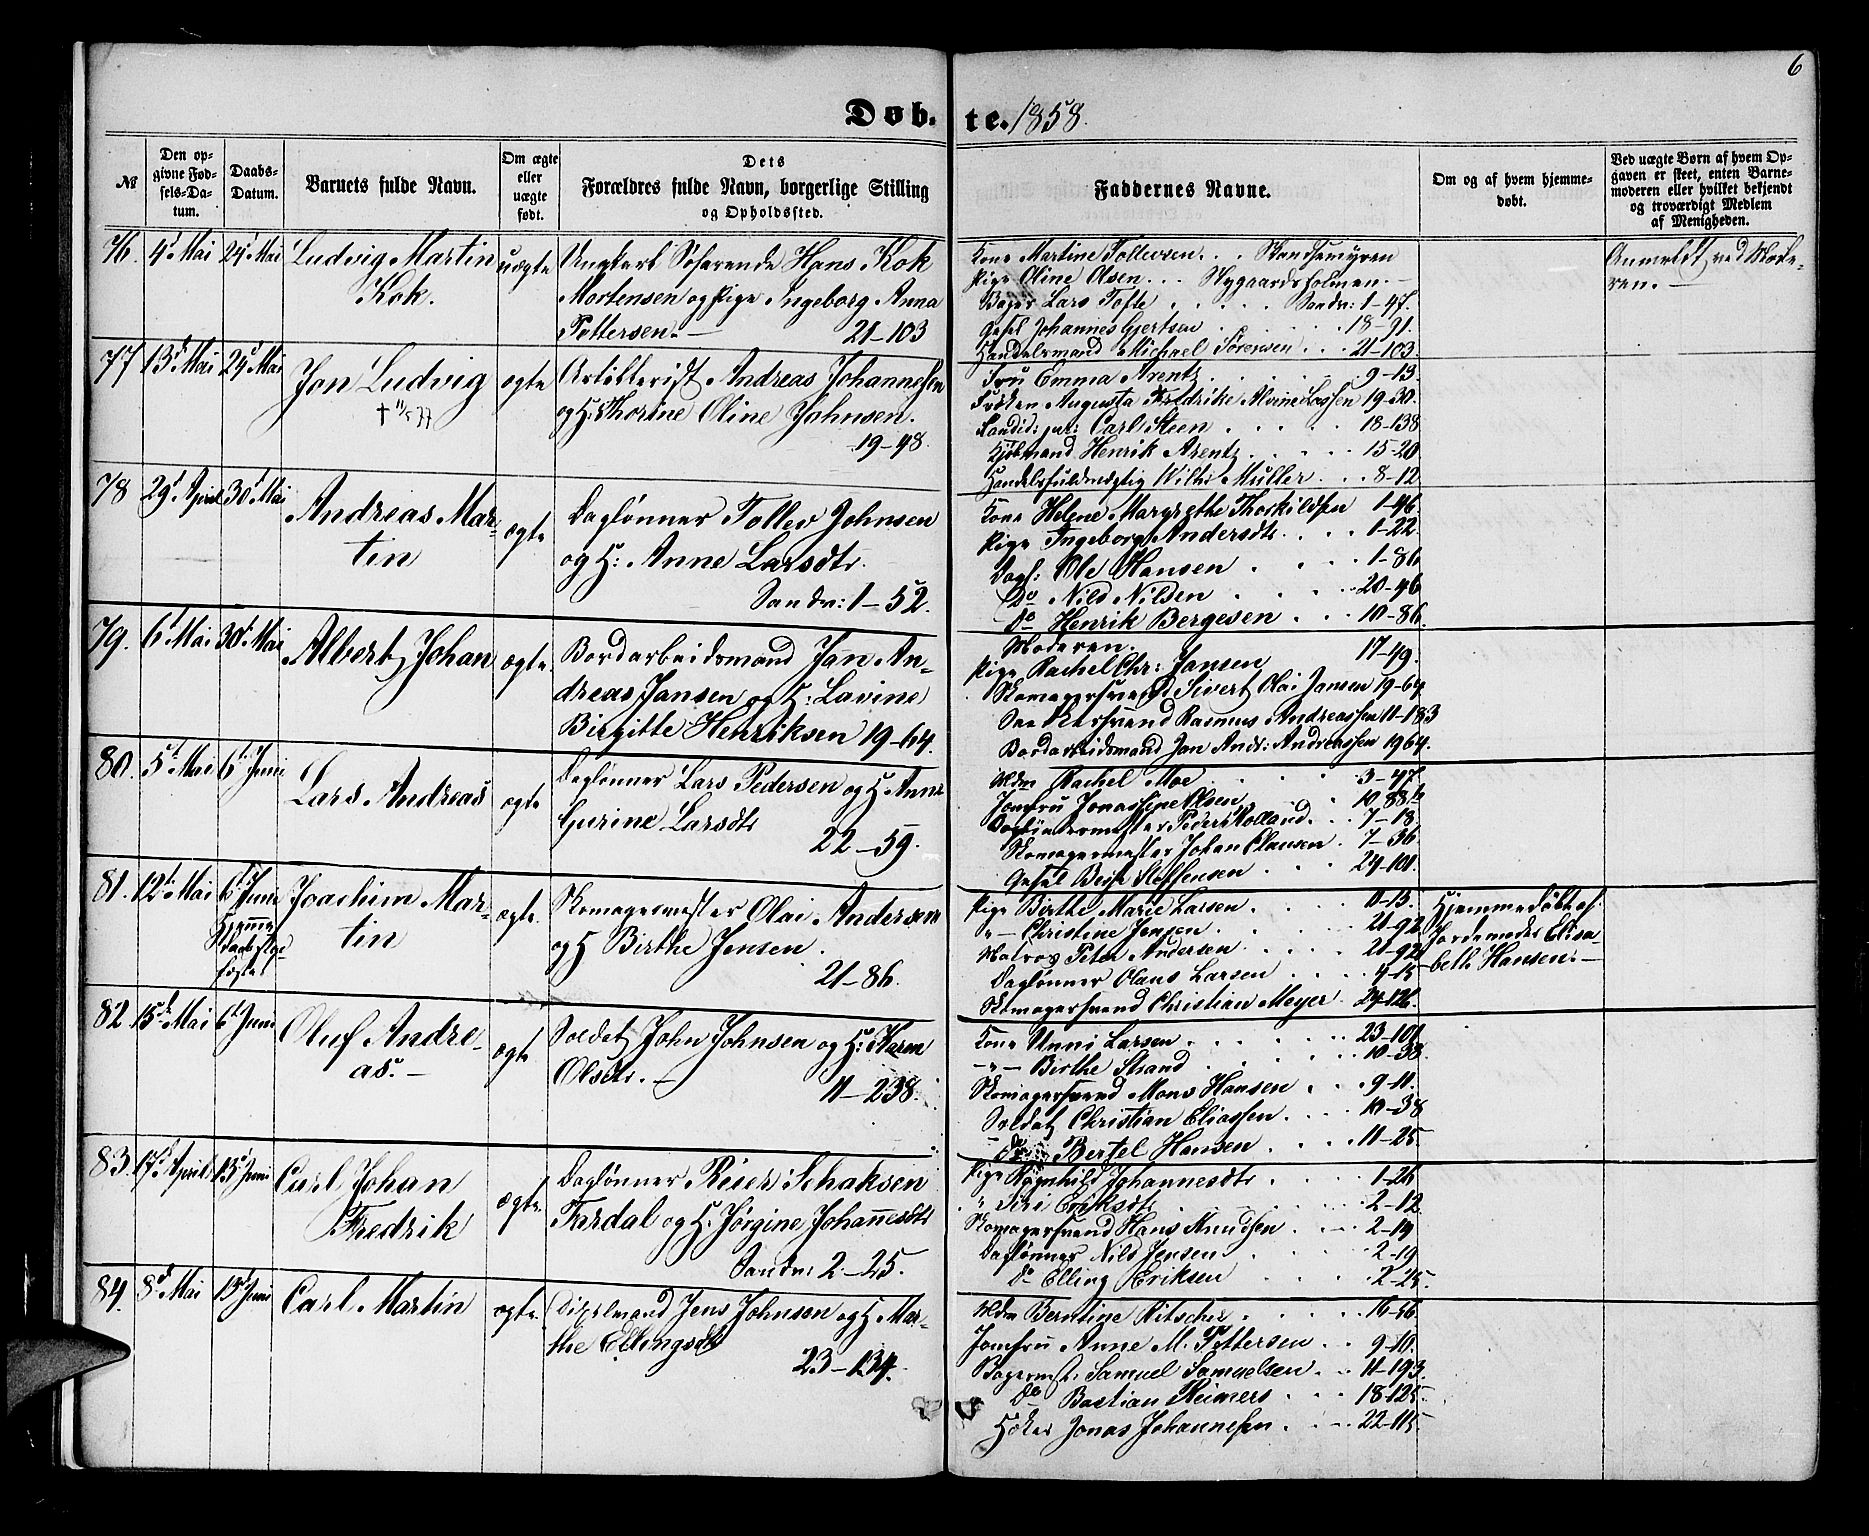 6
Døb- te. 1858.
№
Den opgivne Fødsels-Datum.
Daabs-Datum.
Barnets fulde Navn.
Om ægte eller uægte født.
Dets Forældres fulde Navn, borgerlige Stilling og Opholdssted.
Faddernes Navne.
Om og af hvem hjemmedøbt.
Ved uægte Børn af hvem Opgaven er skeet, enten Barnemoderen eller hvilket bekjendt og troværdigt Medlem af Menigheden.
76. 4d Mai 24d Mai Ludvig Martin
Kok.
uægte
Ungkarl Søfarende Hans Kok
Mortensen og Pige Ingeborg Anna
Pettersen.—
21-103
Kone Martine Tollevsen . . . Skandsemyren
Pige Oline Olsen . . . Nygaardsholmen.—
Bager Lars Tofte . . . . . Sandv: 1-47.
Gesel Johannes Gjertsen . . . . . 18-91.
Handelsmand Michael Sørensen . . . 21-103.
Anmeldt ved Mode-
ren.—
77 13d Mai 24d Mai Jon Ludvig
† 11/5 77
ægte
Artillerist Andreas Johannessen
og H: Thorine Oline Johnsen.
19-48.
Fru Emma Arentz . . . . . 9-13
Frøken Augusta Fredrike Alvine Lassen 19-30.
Kandid: jur: Carl Steen . . . . . 18-138
Kjøbmand Henrik Arentz . . . . . 15-20
Handelsfuldmægtig Wilh: Müller . . . 8-12
78 29d April 30d Mai Andreas Mar-
tin
ægte
Daglønner Tollev Johnsen
og H: Anne Larsdtr.
Sandv: 1-52.
Kone Helene Margrethe Thorkildsen 1-46.
Pige Ingeborg Andersdtr. . . . 1-22.
Dagl: Ole Hansen . . . 1-86
Do Nils Nilsen . . . . 20-46
Do Henrik Bergesen . . . 10-86.
79. 6d Mai 30d Mai Albert Johan
ægte
Bordarbeidsmand Jan An-
dreas Jansen og H: Lavine
Birgitte Henriksen 19-64.
Moderen.
Pige Rachel Chr: Jansen 17-49.
Skomagersvend Sivert Olai Jansen 19-64
Rasmus Andreassen 11-183
Bordarbeidsmand Jan Andr: Andreassen 19 64.
80. 5d Mai 6d Juni Lars Andreas
ægte
Daglønner Lars Pedersen og H Anne
Gurine Larsdtr
22-59.
Mdm Rachel Moe . . . . . 3-47.
Jomfru Jonassine Olsen . 10 88 b
Peder Rolland . . . 7-18.
Skomagermester Johan Clausen . 7-36.
Gesel Berje Steffensen . . . 24-101.
81. 12d Mai 6d Juni
Hjemme
daabstad-
fæstet
Joachim Mar-
tin
ægte.
Skomagermester Olai Andersen
og H Birthe Jensen.
21-86.
Pige Birthe Marie Larsen . . . . 11-15.
"— Christine Jensen . . . . 21-92.
Matros Peter Andersen . . . . 21-92
Dagløner Olaus Larsen . . . . 4-15
Skomagersvend Christian Meyer . 24-126.
Hjemmedøbt af
Jordemoder Elisa-
beth Hansen.—
82. 15d Mai 6d Juni Oluf Andre-
as.—
ægte
Soldat John Johnsen og H: Karen
Olsdtr.—
11-238.
Kone Unni Larsen . . . . . 23-101
—"— Birthe Strand . . . . 10-38.
Skomagersvend Mons Hansen . . . 9-11.
Soldat Christian Eliassen . . . . 10-38
Do Bertel Hansen . . . . 11-25.
83. 17d April 13d Juni Carl Johan
Fredrik
ægte.
Daglønner Reier Schaksen
Fardal og H: Jørgine Johannesdtr
Sandv: 2-25.
Pige Røgnhild Johannesdtr . . . . 1-26
" Siri Eriksdtr . . . . . 2-12
Skomagersvend Hans Knudsen . . . 2-19
Dagløner Nils Jensen . . . . . 2-19
Do Elling Eriksen . . . . 2-25.
84. 8d Mai 13d Juni Carl Martin
ægte.
Jens Johnsen og H Mar-
the Ellingsdtr
23-134.
Mdm Berntine Ritscher . . . . 16-56
Jomfru Anne M. Pettersen . . 9-10.
Bagermst. Samuel Samuelsen . . . 11-193
Do Bastian Reimers . . . 18-125
Høker Jonas Johannesen . . . . 22-115